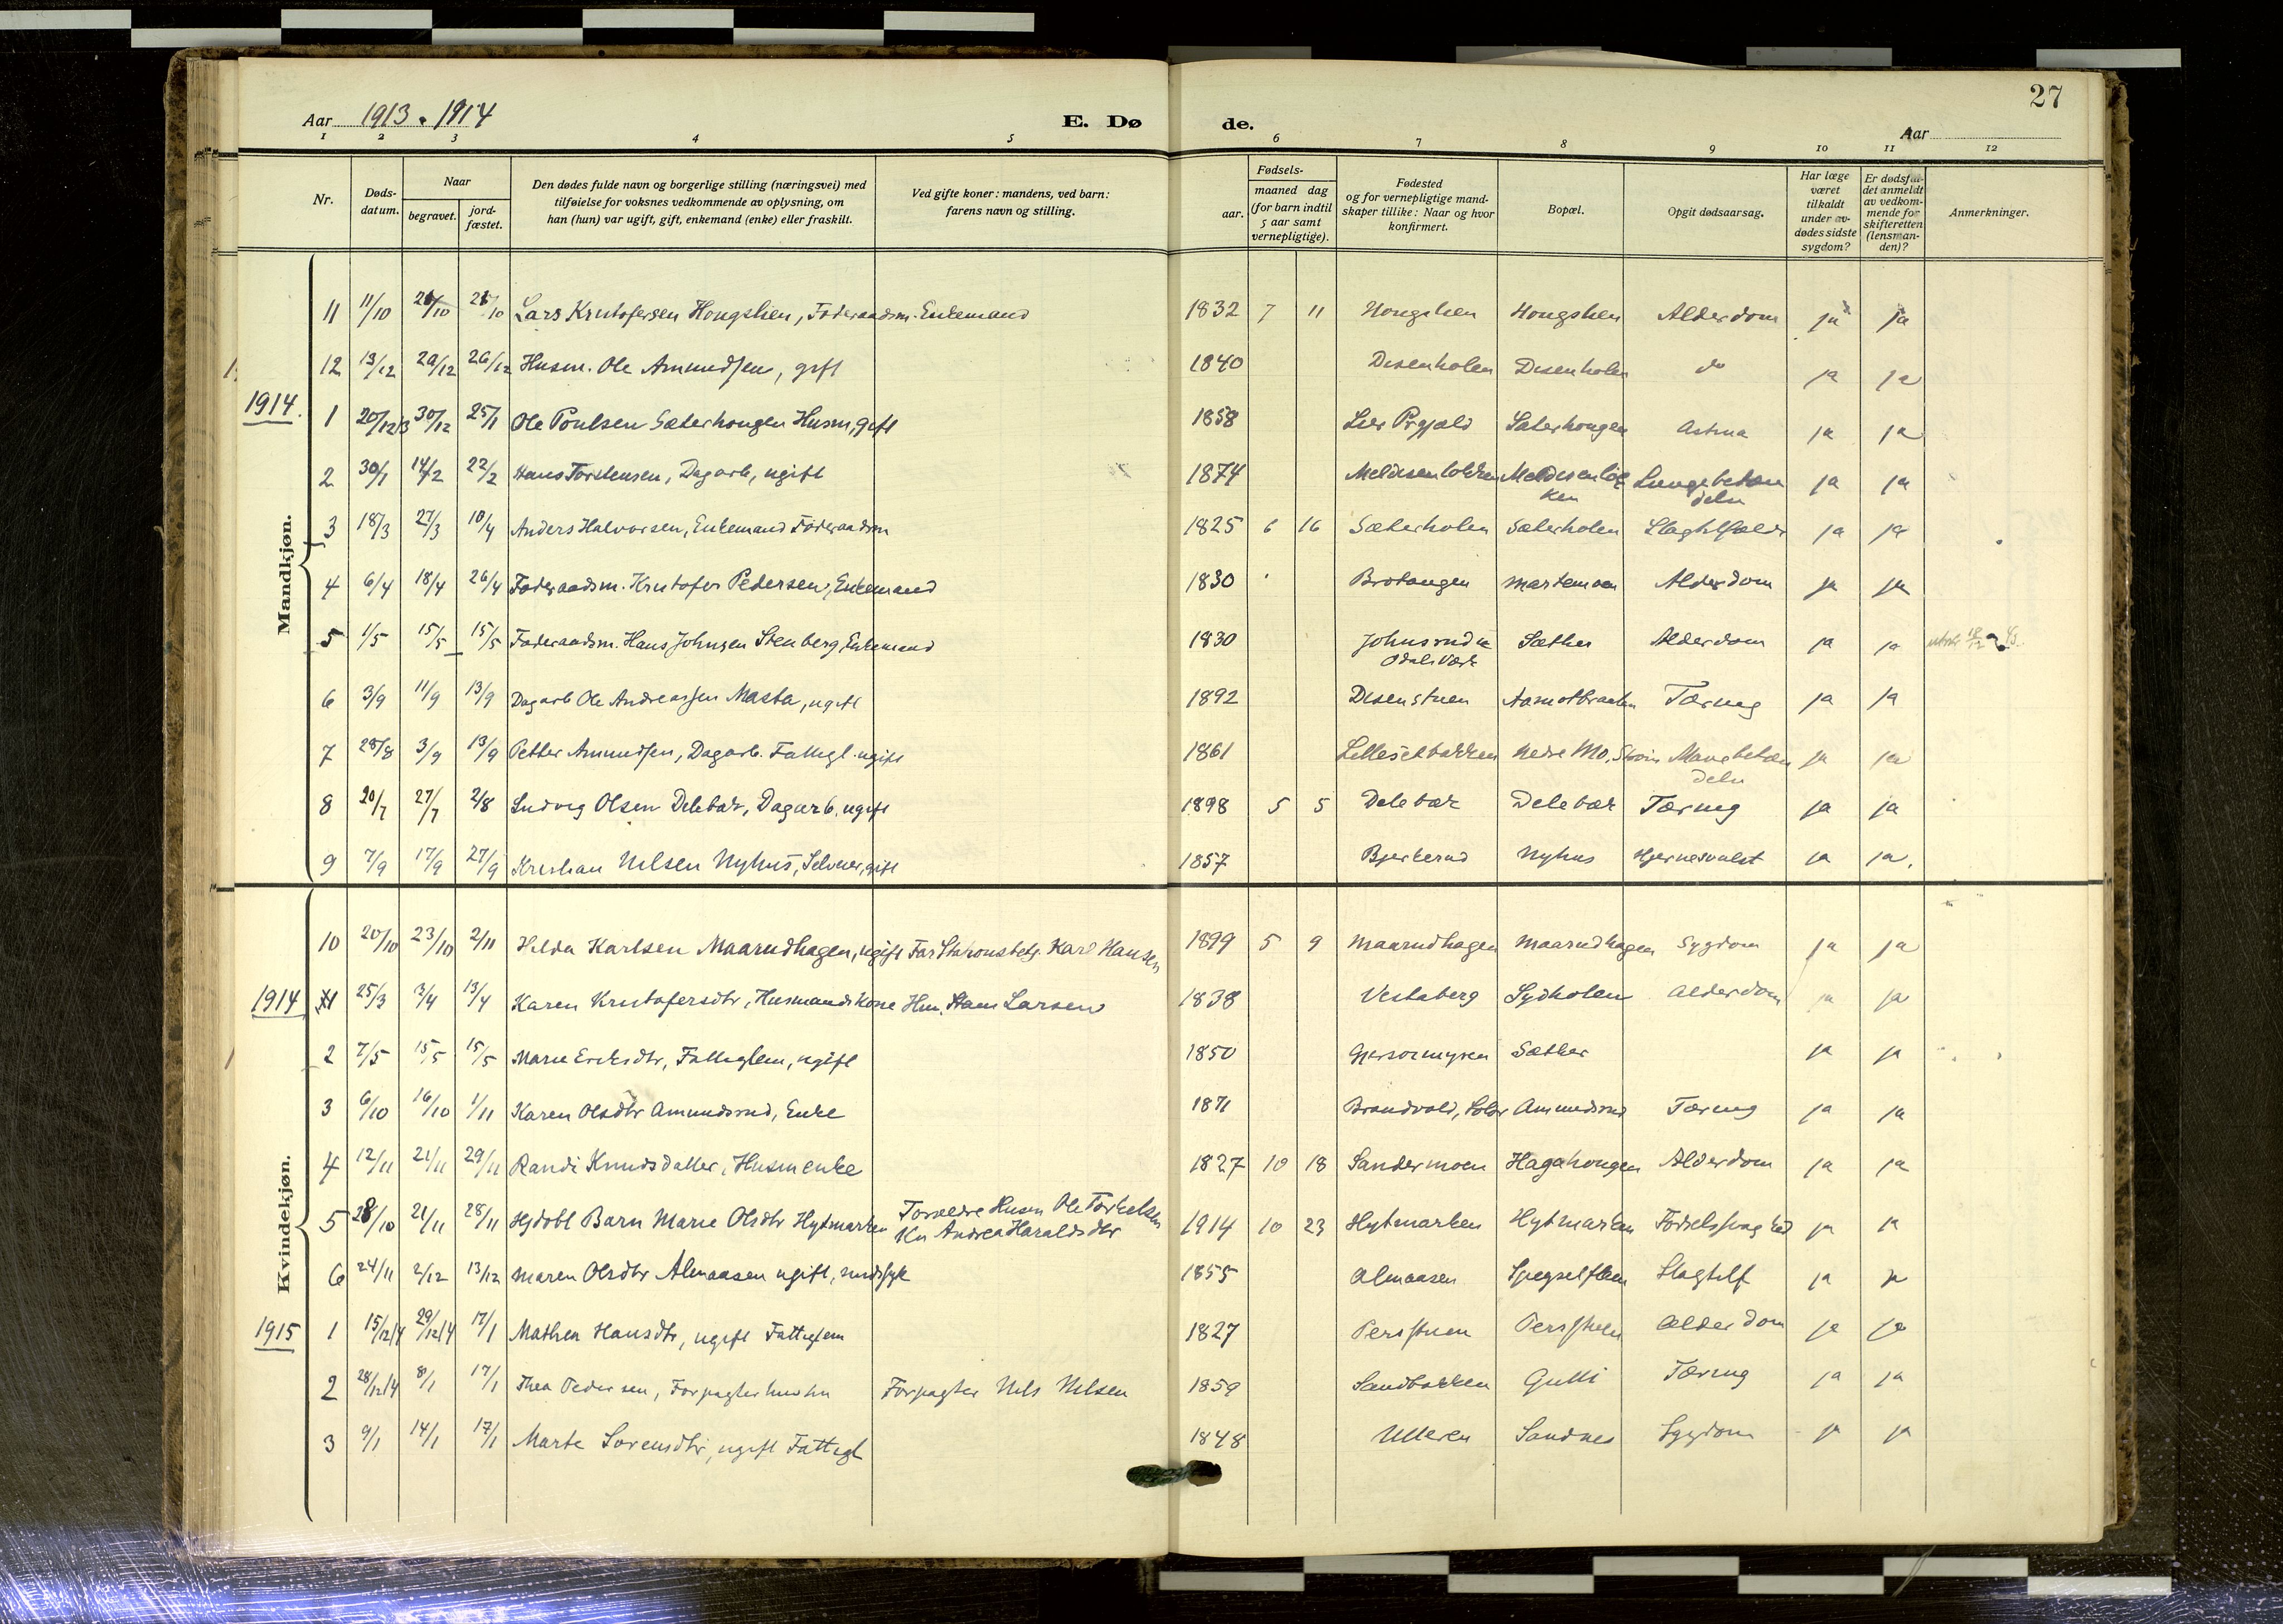 27
Aar 1913 . 1914 E. Dø de. Aar
1 2 3 4 5 6 7 8 9 10 11 12
Nr. Døds-datum. Naar begravet. jord-fæstet. Den dødes fulde navn og borgerlige stilling (næringsvei) med tilføielse for voksnes vedkommende av oplysning, om han (hun) var ugift, gift, enkemand (enke) eller fraskilt. Ved gifte koner: mandens, ved barn: farens navn og stilling. Fødsels- aar. maaned dag (for barn indtil 5 aar samt vernepligtige). Fødested og for vernepligtige mandskaper tillike: Naar og hvor konfirmert. Bopæl. Opgit dødsaarsag. Har læge været tilkaldt under avdødes sidste sygdom? Er dødsfaldet anmeldt av vedkommende for skifteretten (lensmanden)? Anmerkninger.
Mandkjøn.
11 11/10 /10 /10 Lars Kristofersen Hongslien, Føderaadsm. Enkemand 1832 7 11 Hongslien Hongslien Alderdom ja ja
12 13/12 20/12 26/12 Husm. Ole Amundsen, gift 1840 Disenholen Disenholen do ja ja
1914. 1 20/12 13 30/12 25/1 Ole Poulsen Sæterhougen Husm, gift 1858 Lier Prgjæld Sæterhougen Astma ja ja
2 30/1 14/2 22/2 Hans Torstensen, Dagarb, ugift 1874 Meldisenløkken Meldisenløkken Lungebetændelse ja ja
3 18/3 27/3 10/4 Anders Halvorsen, Enkemand Føderaadsm 1825 6 16 Sæterholen Sæterholen ja ja
4 6/4 18/4 26/4 Føderaadsm. Kristofer Pedersen, Enkemand 1830 Brotangen Martemoen Alderdom ja ja
5 1/5 15/5 15/5 Føderaadsm. Hans Johnsen Stenberg, Enkemand 1830 Johnsrud i Odals Værk Sæther Alderdom ja ja
6 3/9 11/9 13/9 Dagarb Ole Andreassen Masta, ugift 1892 Disenstuen Aamotbraaten Tæring ja ja
7 28/8 3/9 13/9 Petter Amundsen, Dagarb. Fattigl. ugift 1861 Lillesetbakken Nedre Mo, Strøm Mavebetændelse ja ja
8 20/7 27/7 2/8 Ludvig Olsen Delebæk, Dagarb. ugift 1898 5 5 Delebæk Delebæk Tæring ja ja
9 7/9 17/9 27/9 Kristian Nilsen Nyhus, Selveier, gift 1857 Bjerkerud Nyhus Hjernesvulst ja ja.
Kvindekjøn.
10 20/10 23/10 2/11 Hilda Karlsen Maarudhagen, ugift Far Stationsbetj. Karl Hansen 1899 5 9 Maarudhagen Maarudhagen Sygdom ja ja
1914 1 25/3 3/4 13/4 Karen Kristofersdtr, Husmandskone Hm. Hans Larsen 1838 Vestaberg Sydholen Alderdom ja ja
2 7/5 15/5 15/5 Marie Eriksdtr, Fattiglem, ugift 1850 Gjersoemyren Sæther ja ja
3 6/10 16/10 1/11 Karen Olsdtr Amundsrud, Enke 1871 Brandvold, Solør Amundsrud Tæring ja ja
4 12/11 21/11 29/11 Randi Knudsdatter, Husmenke 1827 10 18 Sandermoen Hagahougen Alderdom ja ja
5 28/10 21/11 28/11 Hjdøbt Barn Marie Olsdtr Hytmarken Forældre Husm Ole Torkelsen Ku Andrea Haraldsdtr 1914 10 23 Hytmarken Hytmarken Fødselssvaghed ja ja
6 24/11 2/12 13/12 Maren Olsdtr Almaasen ugift, sindssyk 1855 Almaasen Slagtilf ja ja
1915 1 15/12 14 29/12 14 17/1 Mathea Hansdtr, ugift Fattiglem 1827 Persstuen Persstuen Alderdom ja ja
2 28/12 14 8/1 17/1 Thea Pedersen, Forpagterhustru Forpagter Nils Nilsen 1859 Sandbakken Gulli Tæring ja ja
3 9/1 14/1 17/1 Marte Sorensdtr, ugift Fattigl 1848 Ulleren Sandnes Sygdom ja ja